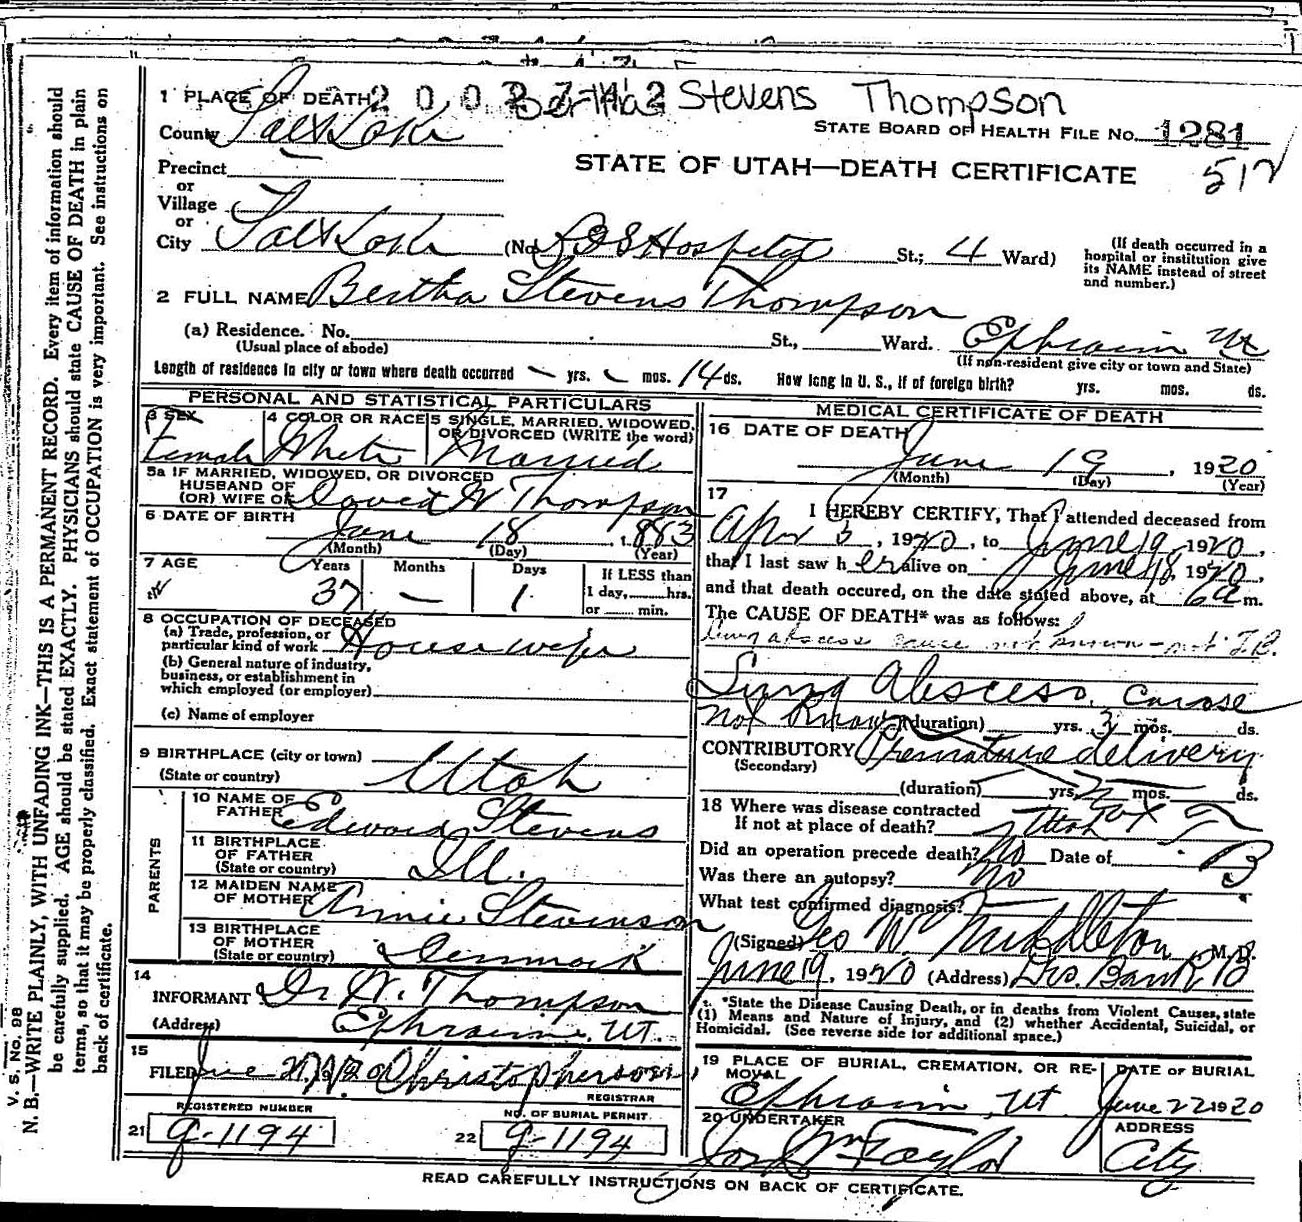 Bertha Stevens Thompson
1 PLACE OF DEATH 2 0 0 2 7 4 2
STATE BOARD OF HEALTH FILE NO. 1281
County Salt Lake
STATE OF UTAH—DEATH CERTIFICATE
512
Precinct
or
Village
or
City Salt Lake (No. LDS Hospital St.; 4 Ward)
(If death occurred in a hospital or institution give its NAME instead of street and number.)
2 FULL NAME Bertha Stevens Thompson
(a) Residence. No. St., Ward. Ephraim Ut
(Usual place of abode) (If non-resident give city or town and State)
Length of residence in city or town where death occurred — yrs. — mos. 14 ds. How long in U. S., if of foreign birth? yrs. mos. ds.
PERSONAL AND STATISTICAL PARTICULARS
3 SEX
Female
4 COLOR OR RACE
White
5 SINGLE, MARRIED, WIDOWED, OR DIVORCED (WRITE the word)
Married
5a IF MARRIED, WIDOWED, OR DIVORCED
HUSBAND OF
(OR) WIFE OF David W Thompson
6 DATE OF BIRTH June 18, 1883
(Month) (Day) (Year)
7 AGE Years Months Days If LESS than
1 day, hrs.
or min.
37 — 1
8 OCCUPATION OF DECEASED
(a) Trade, profession, or
particular kind of work Housewife
(b) General nature of industry,
business, or establishment in
which employed (or employer)
(c) Name of employer
9 BIRTHPLACE (city or town)
(State or country) Utah
PARENTS
10 NAME OF
FATHER Edward Stevens
11 BIRTHPLACE
OF FATHER
(State or country) Ill.
12 MAIDEN NAME
OF MOTHER Annie Stevenson
13 BIRTHPLACE
OF MOTHER
(State or country) Denmark
14
INFORMANT D. W. Thompson
(Address) Ephraim, UT.
15
FILED June Christopherson
REGISTRAR
REGISTERED NUMBER
21 g-1194
NO. OF BURIAL PERMIT.
22 g-1194
MEDICAL CERTIFICATE OF DEATH
16 DATE OF DEATH
June 19, 1920
(Month) (Day) (Year)
17
I HEREBY CERTIFY, That I attended deceased from
Apr 3, 1920, to June 19 1920,
that I last saw her alive on June 18, 1920,
and that death occured, on the date stated above, at 6 a m.
The CAUSE OF DEATH* was as follows:
Lung abscess cause not known—not T.B.
Lung Abscess. Cause
not known (duration) yrs. 3 mos. ds.
CONTRIBUTORY Premature delivery
(Secondary)
(duration) yrs. mos. ds.
18 Where was disease contracted
If not at place of death? Utah
Did an operation precede death? No Date of
Was there an autopsy? No
What test confirmed diagnosis?
(Signed) Geo W Middleton M.D.
June 19, 1920 (Address) Des. Bank B
*State the Disease Causing Death, or in deaths from Violent Causes, state
(1) Means and Nature of Injury, and (2) whether Accidental, Suicidal, or
Homicidal. (See reverse side for additional space.)
19 PLACE OF BURIAL, CREMATION, OR RE-
MOVAL
Ephraim, Ut
DATE OF BURIAL
June 22 1920
20 UNDERTAKER
Taylor
ADDRESS
City
READ CAREFULLY INSTRUCTIONS ON BACK OF CERTIFICATE.
V. S. No. 98
N. B.—WRITE PLAINLY, WITH UNFADING INK—THIS IS A PERMANENT RECORD. Every item of information should
be carefully supplied. AGE should be stated EXACTLY. PHYSICIANS should state CAUSE OF DEATH in plain
terms, so that it may be properly classified. Exact statement of OCCUPATION is very important. See instructions on
back of certificate.